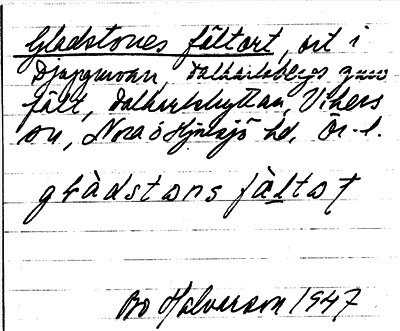 Gladstones fältort, ort i
Djupgruvan, Dalkarlsbergs gruv
fält, Dalkarlshyttan, Vikers
sn, Nora o Hjulsjö hd. Ör. l.
glàdstɷns fàltɷṭ
Bo Halverson 1947